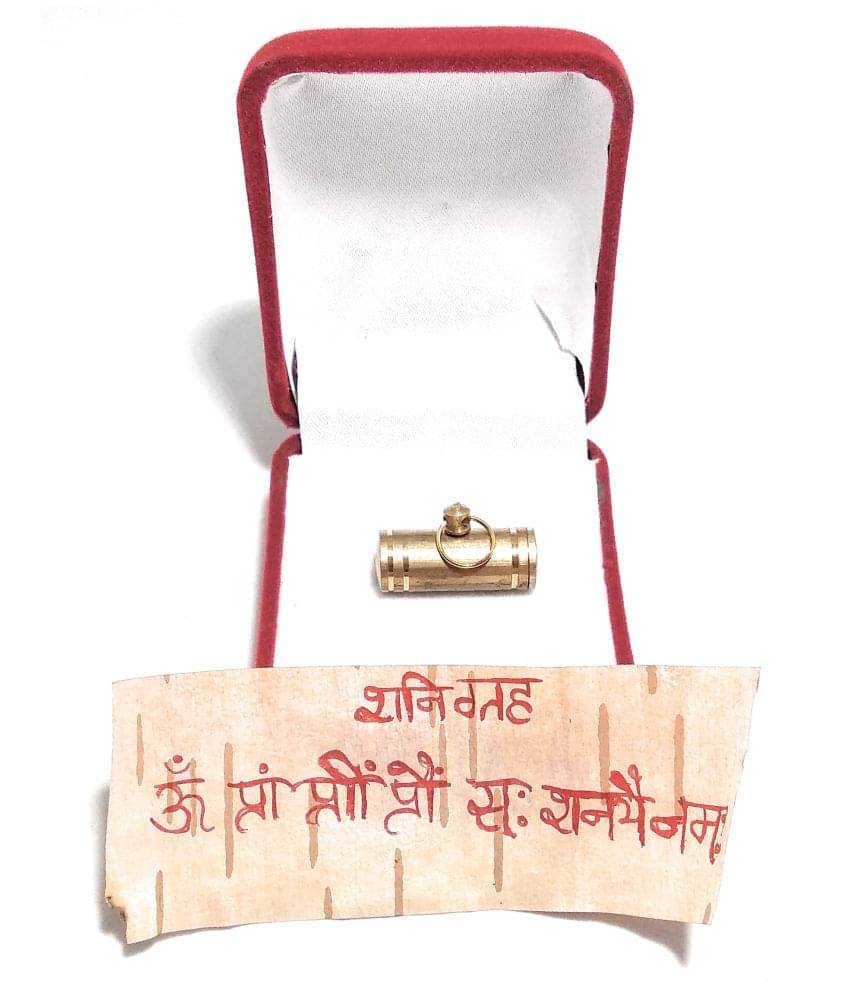 शनि ग्रह
ॐ प्रां प्रीं प्रौं सः शनयै नमः